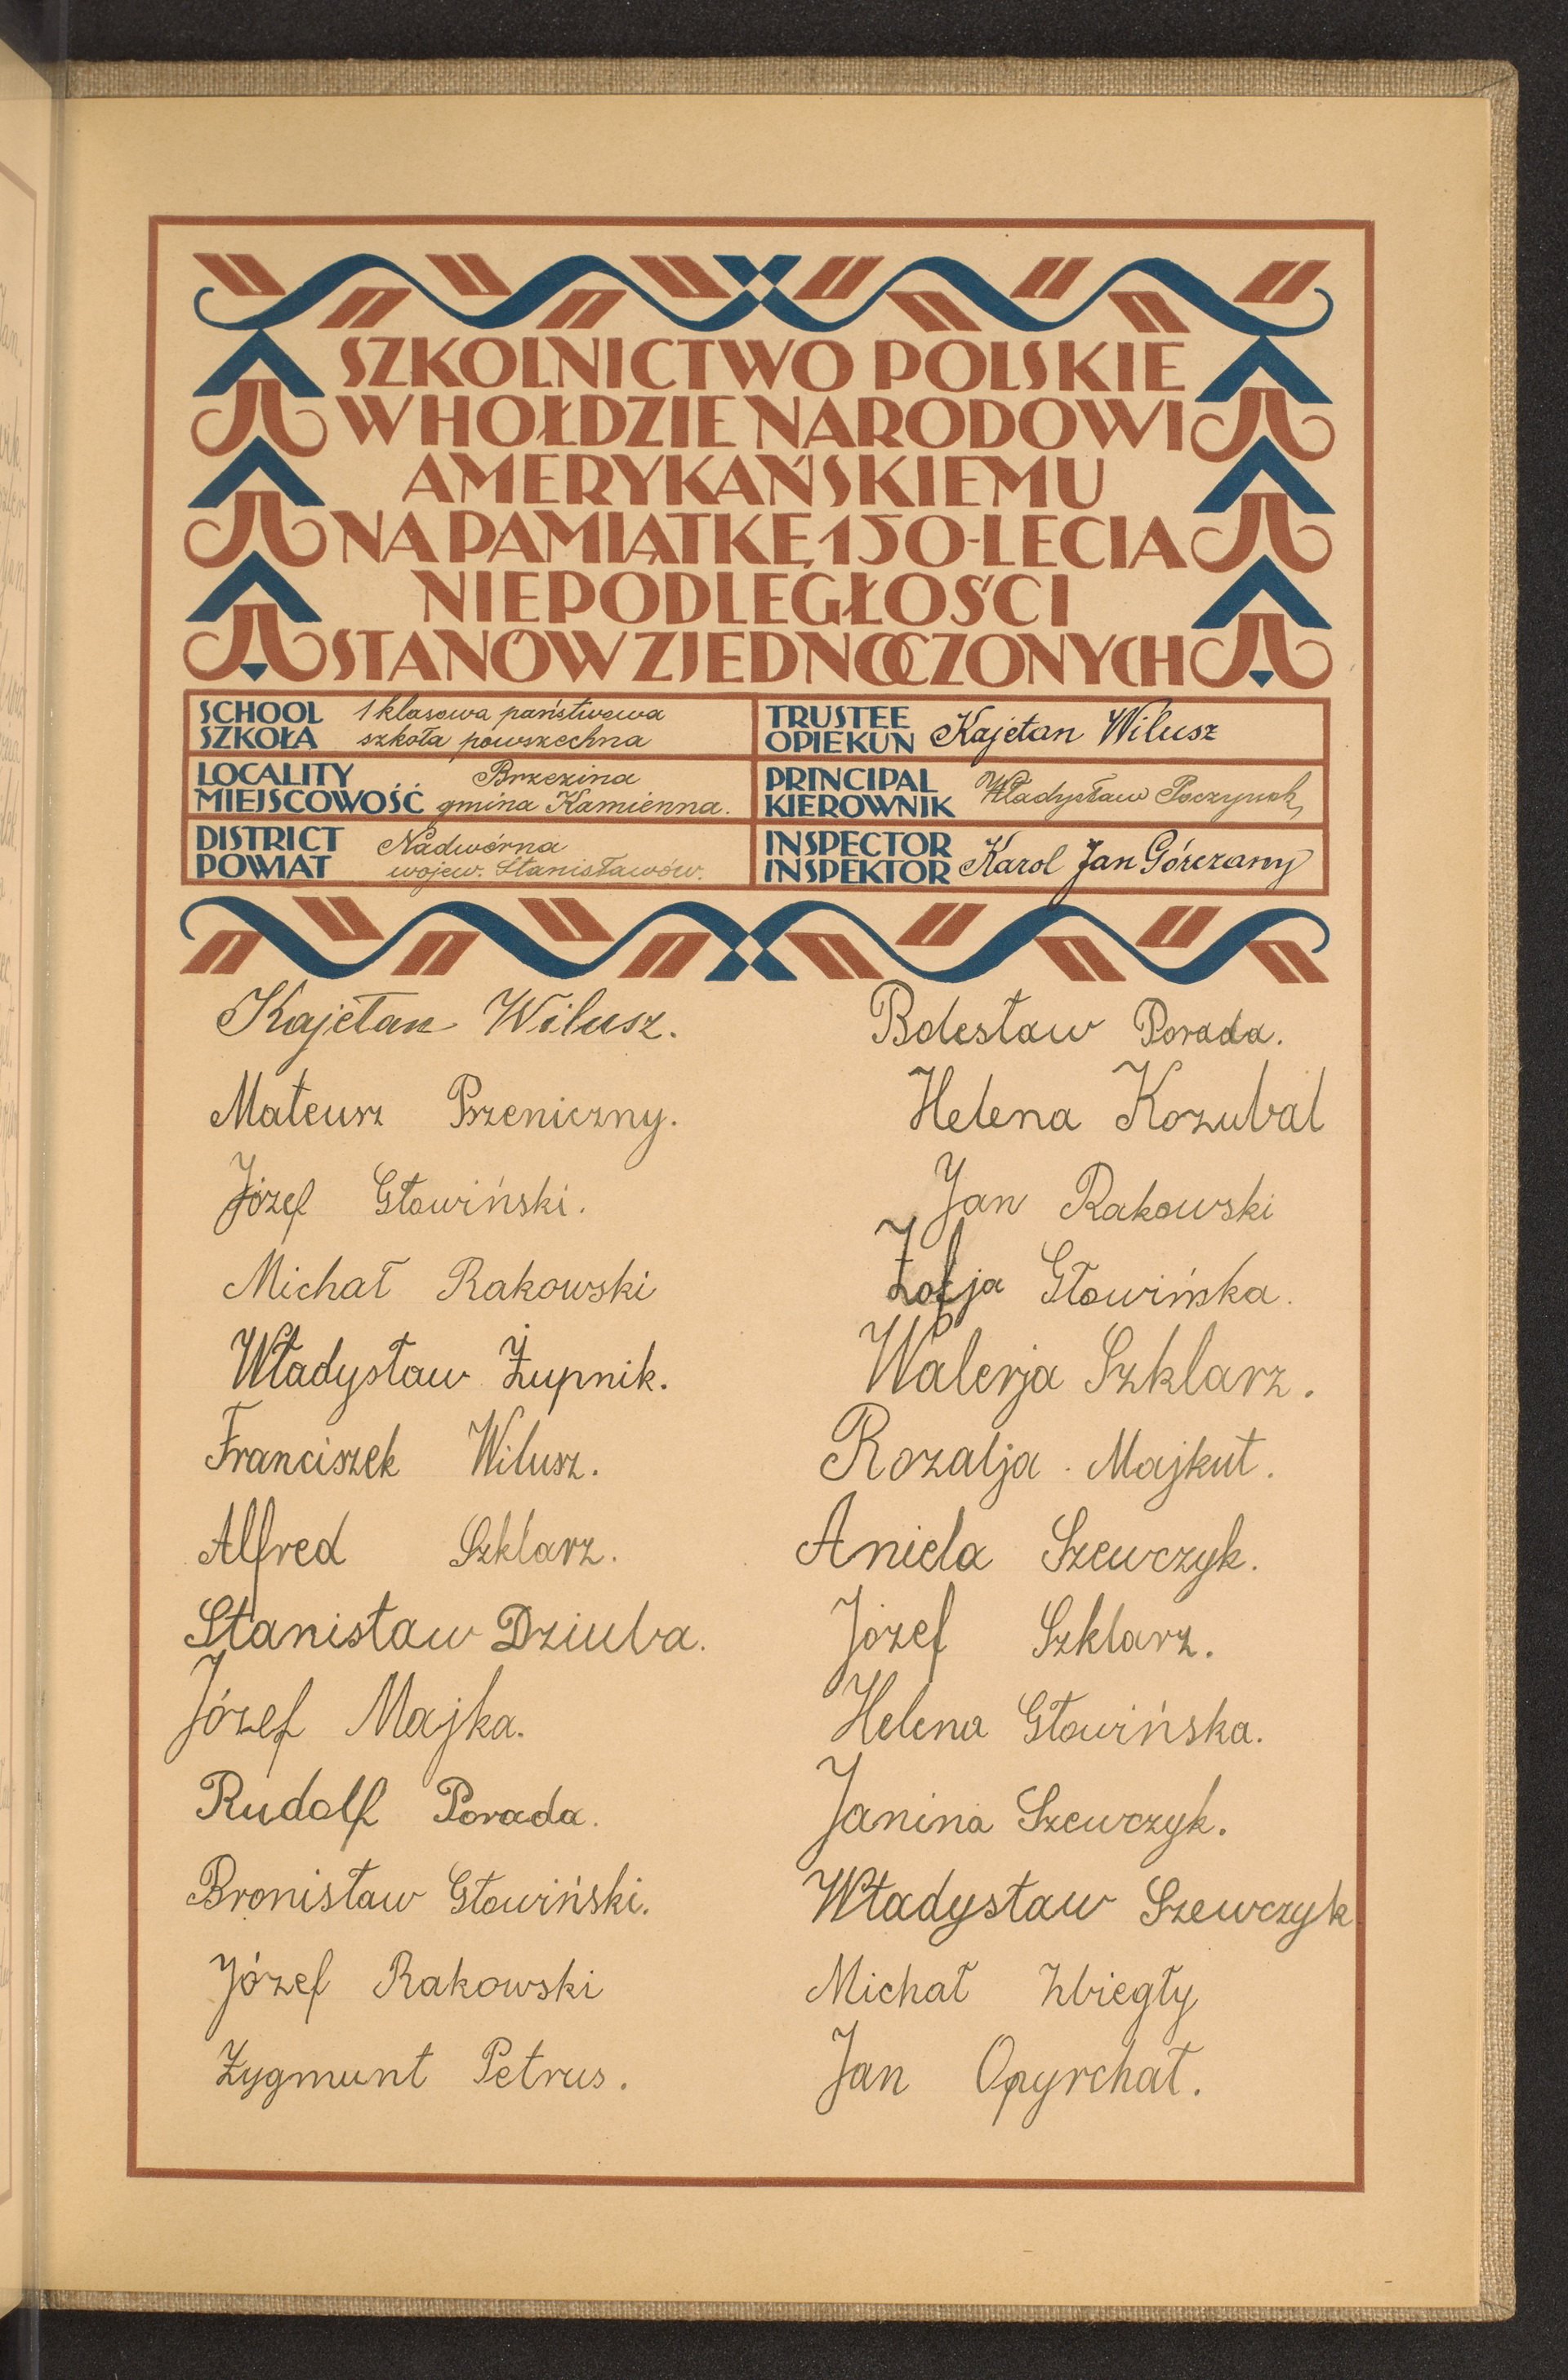 SZKOLNICTWO POLSKIE
W HOŁDZIE NARODOWI
AMERYKAŃSKIEMU
NA PAMIĄTKĘ 150-LECIA
NIEPODLEGŁOŚCI
STANÓW ZJEDNOCZONYCH
SCHOOL
SZKOŁA
1 klasowa państwowa
szkoła powszechna
TRUSTEE
OPIEKUN
Kajetan Wilusz
LOCALITY
MIEJSCOWOŚĆ
Brzezina
gmina Kamienna.
PRINCIPAL
KIEROWNIK
Władysław
DISTRICT
POWIAT
Nadwórna
wojew. Stanisławów.
INSPECTOR
INSPEKTOR
Karol Jan Górczany
Kajetan Wilusz.
Mateusz Pszeniczny.
Józef Głowiński.
Michał Rakowski
Władysław Żupnik.
Franciszek Wilusz.
Alfred Szklarz.
Stanisław Dziuba.
Józef Majka.
Rudolf Porada.
Bronisław Głowiński.
Józef Rakowski
Zygmunt Petrus.
Bolesław Porada.
Helena Kozubal
Jan Rakowski
Zofja Głowińska.
Walerja Szklarz.
Rozalja Majkut.
Aniela Szewczyk.
Józef Szklarz.
Helena Głowińska.
Janina Szewczyk.
Władysław Szewczyk
Michał Zbiegły
Jan Opyrchał.